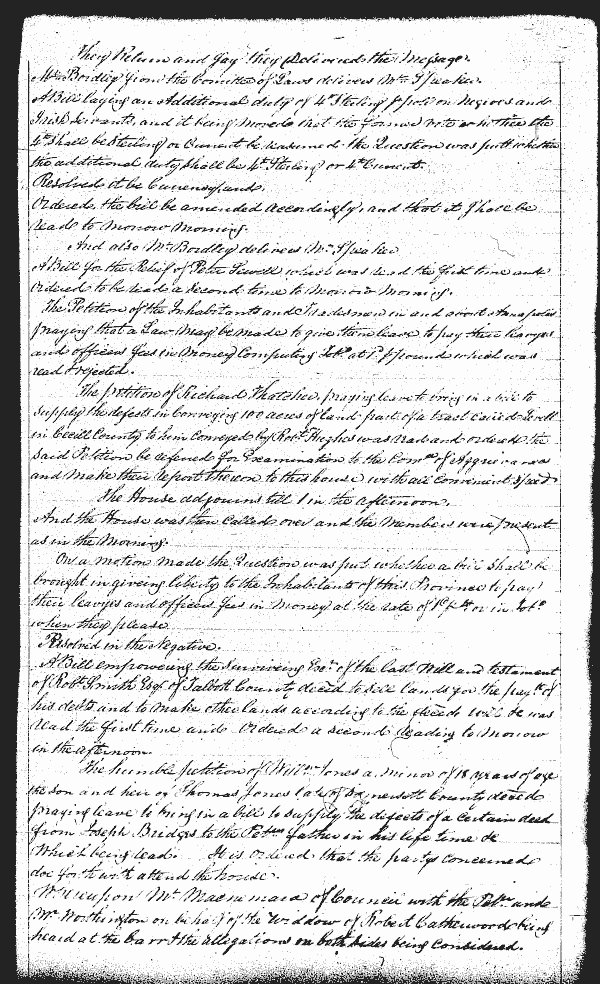 They Return and say they Delivered the Message.
Mr. Bordley from the Comittee of Laws delivers Mr. Speaker
A Bill laying an Additional duty of 4d Sterling p poll on Negroes and
Irish Servants, and it being moved that the former vote whether the
4d Shall be Sterling or Current be reasumed the Question was putt whether
the additional duty shall be 4d Sterling or 4d Current.
Resolved it be Currency
Ordered the bill be amended accordingly, and that it Shall be
read to Morrow Morning.
And also Mr. Bordley delivers Mr. Speaker
A Bill for the Relief of Peter Sewell which was read the first time and
Ordered to be read a Second time to Morrow Morning.
The Petition of the Inhabitants and Tradesmen in and about Annapolis
praying that a Law may be made to give them leave to pay their Leavyes
and officers fees in Money Computing Tobo. at 1d p pound which was
read & rejected.
The petition of Richard Thatcher, praying leave to bring in a bill to
supply the defects in Conveying 100 acres of Land part of a tract called
in Cecill County to him Conveyed by Robt. Hughes was read and ordered the
said Petition be referred for Examination to the Comee. of Aggrievances
and make their report thereon to this house with all Convenient Speed
The House adjourns till 1 in the afternoon.
And the House was then Called over and the Members were present
as in the Morning.
On a motion made the Question was put whether a bill shall be
brought in giveing liberty to the Inhabitants of this Province to pay
their leavyes and officers fees in Money at the rate of 1d in Tobo.
when they please
Resolved in the Negative.
A Bill empowering the surviveing Exr. of the last Will and testament
of Robt. Smith Esqr. of Talbott County deced to sell lands for the paymt. of
his debts and to make other lands according to the deceds will &c was
read the first time and Ordered a second reading to Morrow
in the afternoon.
The humble petition of Willm. Jones a minor of 18 years of age
the son and heir of Thomas Jones late of Somersett County deced
praying leave to bring in a bill to supply the defects of a certain deed
from Joseph Bridges to the Petrs. father in his life time &c
Which being read. It is Ordered that the partys concerned
doe forthwith attend the house.
Whereupon Mr. Macnemara of Councill with the Petr. and
Mr. Worthington on behalf of the Widdow of Robert Catherwood being
heard at the barr & the allegations on both sides being Considered.